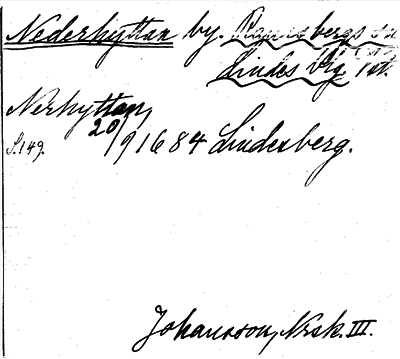 Nederhyttan by. Ramsbergs sn
Lindes blg Vstm.
Nerhyttan,
S.149. 20/9 1684 Lindesberg.
Johansson, Nrsk. III.